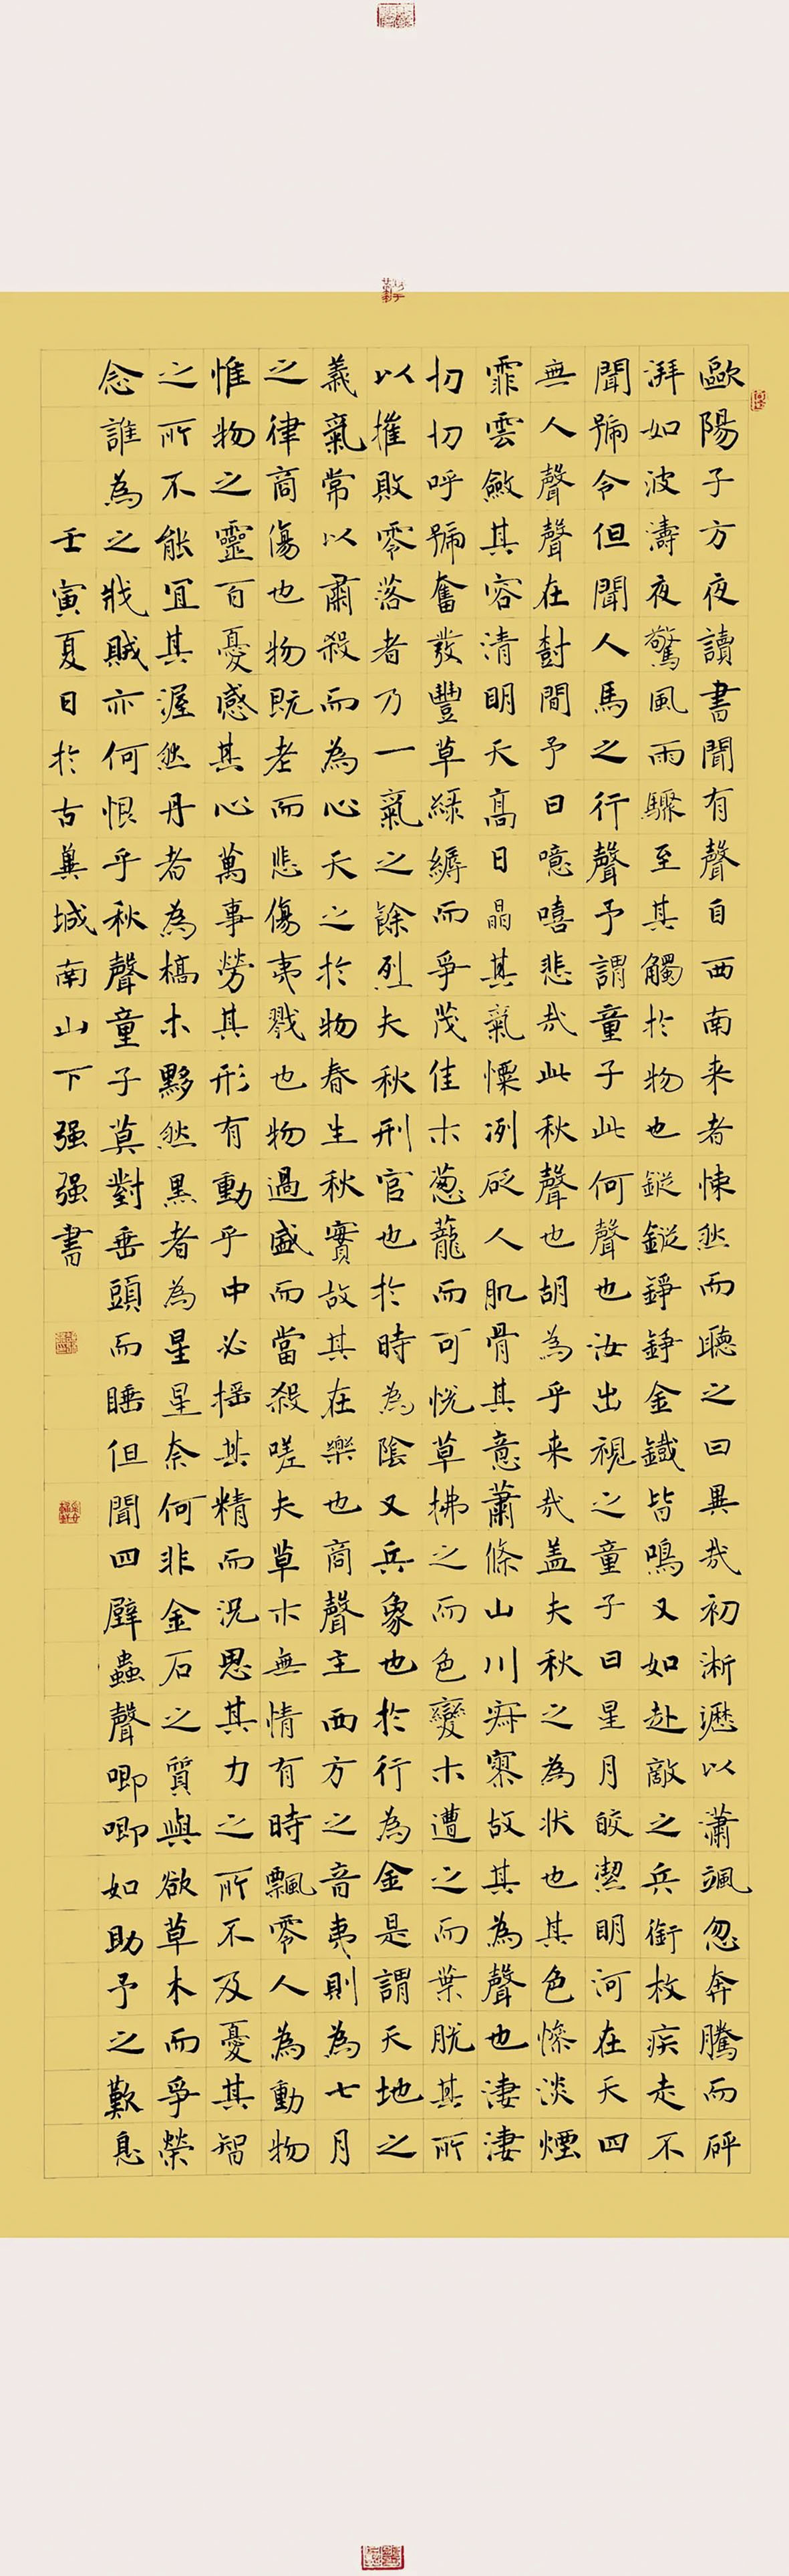 歐陽子方夜讀書聞有聲自西南来者悚然而聽之曰異哉初淅瀝以瀟颯忽奔騰而砰
湃如波濤夜驚風雨驟至其觸於物也鏦鏦錚錚金鐵皆鳴又如赴敵之兵銜枚疾走不
聞號令但聞人馬之行聲予謂童子此何聲也汝出視之童子曰星月皎潔明河在天四
無人聲聲在樹間予曰噫嘻悲哉此秋聲也胡為乎来哉盖夫秋之為状也其色慘淡煙
霏雲斂其容清明天高日晶其氣慄冽砭人肌骨其意蕭條山川寂寥故其為聲也淒淒
切切呼號奮發豐草綠縟而爭茂佳木葱蘢而可悦草拂之而色變木遭之而葉脱其所
以摧敗零落者乃一氣之餘烈夫秋刑官也於時為陰又兵象也於行為金是謂天地之
義氣常以肅殺而為心天之於物春生秋實故其在樂也商聲主西方之音夷則為七月
之律商傷也物既老而悲傷夷戮也物過盛而當殺嗟夫草木無情有時飄零人為動物
惟物之靈百憂感其心萬事勞其形有動乎中必揺其精而況思其力之所不及憂其智
之所不能宜其渥然丹者為槁木黟然黑者為星星奈何非金石之質與欲草木而爭榮
念誰為之戕賊亦何恨乎秋聲童子莫對垂頭而睡但聞四壁蟲聲唧唧如助予之歎息
壬寅夏日於古冀城南山下强强書